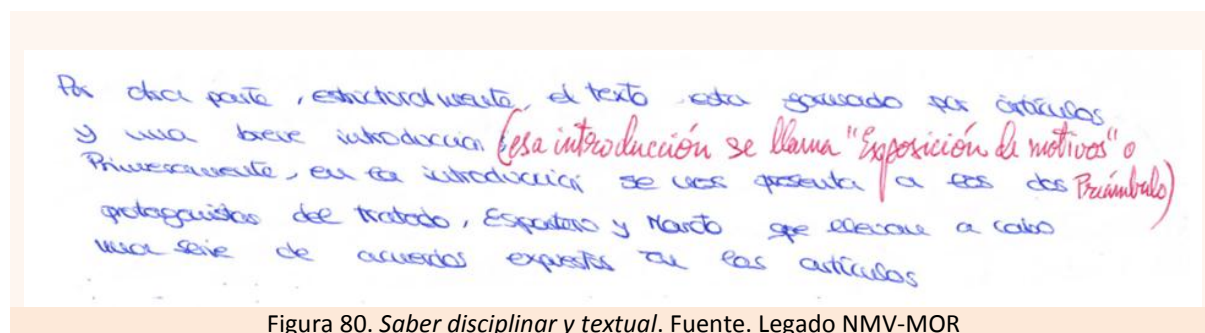 Por otra parte, estructuralmente, el texto esta formado por artículos
y una breve introduccion (esa introducción se llama "Exposición de motivos" o
Primeramente, en la introducción se nos presenta a los dos Preámbulo)
protagonistas del tratado, Espartero y Maroto que llevan a cabo
una serie de acuerdos expuestos en los artículos
Figura 80. Saber disciplinar y textual. Fuente. Legado NMV-MOR